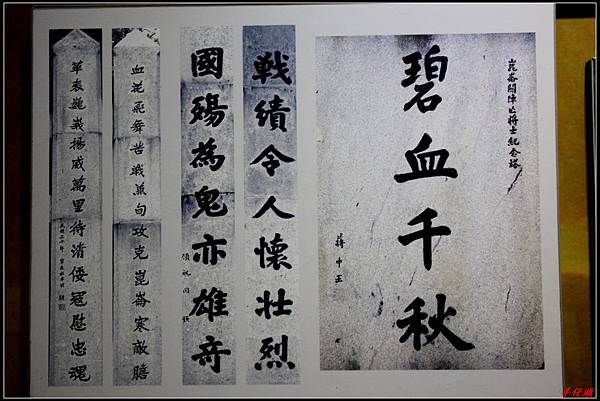 崑崙關陣亡將士紀念塔
碧血千秋
蔣中正
戰績令人懷壯烈
國殤為鬼亦雄奇
顧祝同 題
血花飛舞苦戰兼旬攻克崑崙寒敵膽
華表巍峩揚威萬里待清倭寇慰忠魂
羊仔頭